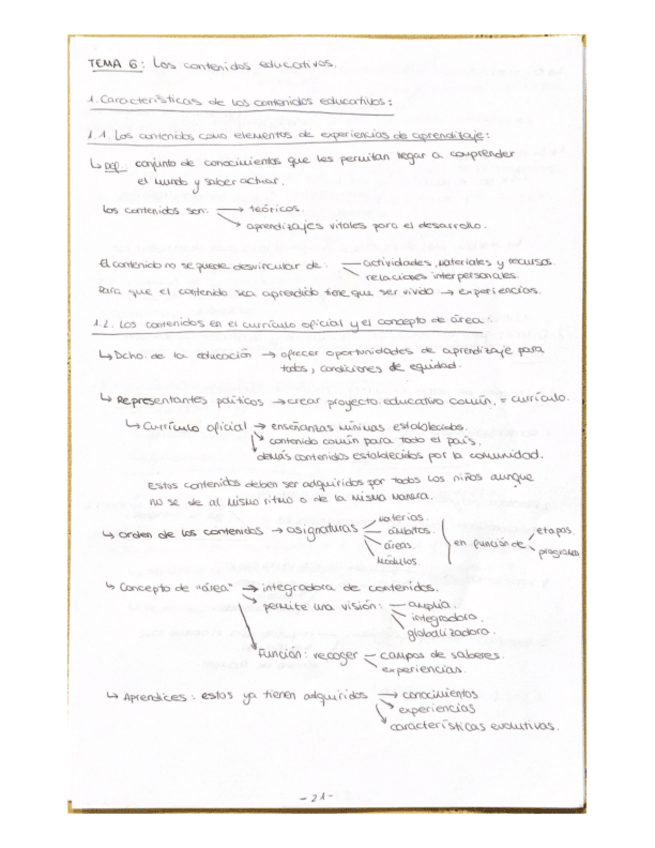 TEMA 6: Los contenidos educativos.
1. Características de los contenidos educativos:
1.1. Los contenidos como elementos de experiencias de aprendizaje:
↳ DEF.: conjunto de conocimientos que les permitan llegar a comprender
el mundo y saber actuar.
Los contenidos son: → teóricos.
↘ aprendizajes vitales para el desarrollo.
El contenido no se puede desvincular de: — actividades, materiales y recursos.
relaciones interpersonales.
Para que el contenido sea aprendido tiene que ser vivido → experiencias.
1.2. Los contenidos en el currículo oficial y el concepto de área:
↳ Dcho. de la educación → ofrecer oportunidades de aprendizaje para
todos, condiciones de equidad.
↳ Representantes políticos → crear proyecto educativo común. = currículo.
↳ Currículo oficial → enseñanzas mínimas establecidas.
↘ contenido común para todo el país.
↓ demás contenidos establecidos por la comunidad.
Estos contenidos deben ser adquiridos por todos los niños aunque
no se de al mismo ritmo o de la misma manera.
↳ Orden de los contenidos → asignaturas
materias.
ámbitos.
áreas.
módulos.
en función de
etapas
programas
↳ Concepto de "área" → integradora de contenidos.
→ permite una visión: — amplia.
integradora.
globalizadora.
Función: recoger — campos de saberes.
experiencias.
↳ Aprendices: estos ya tienen adquiridos → conocimientos
↘ experiencias
características evolutivas.
- 21 -